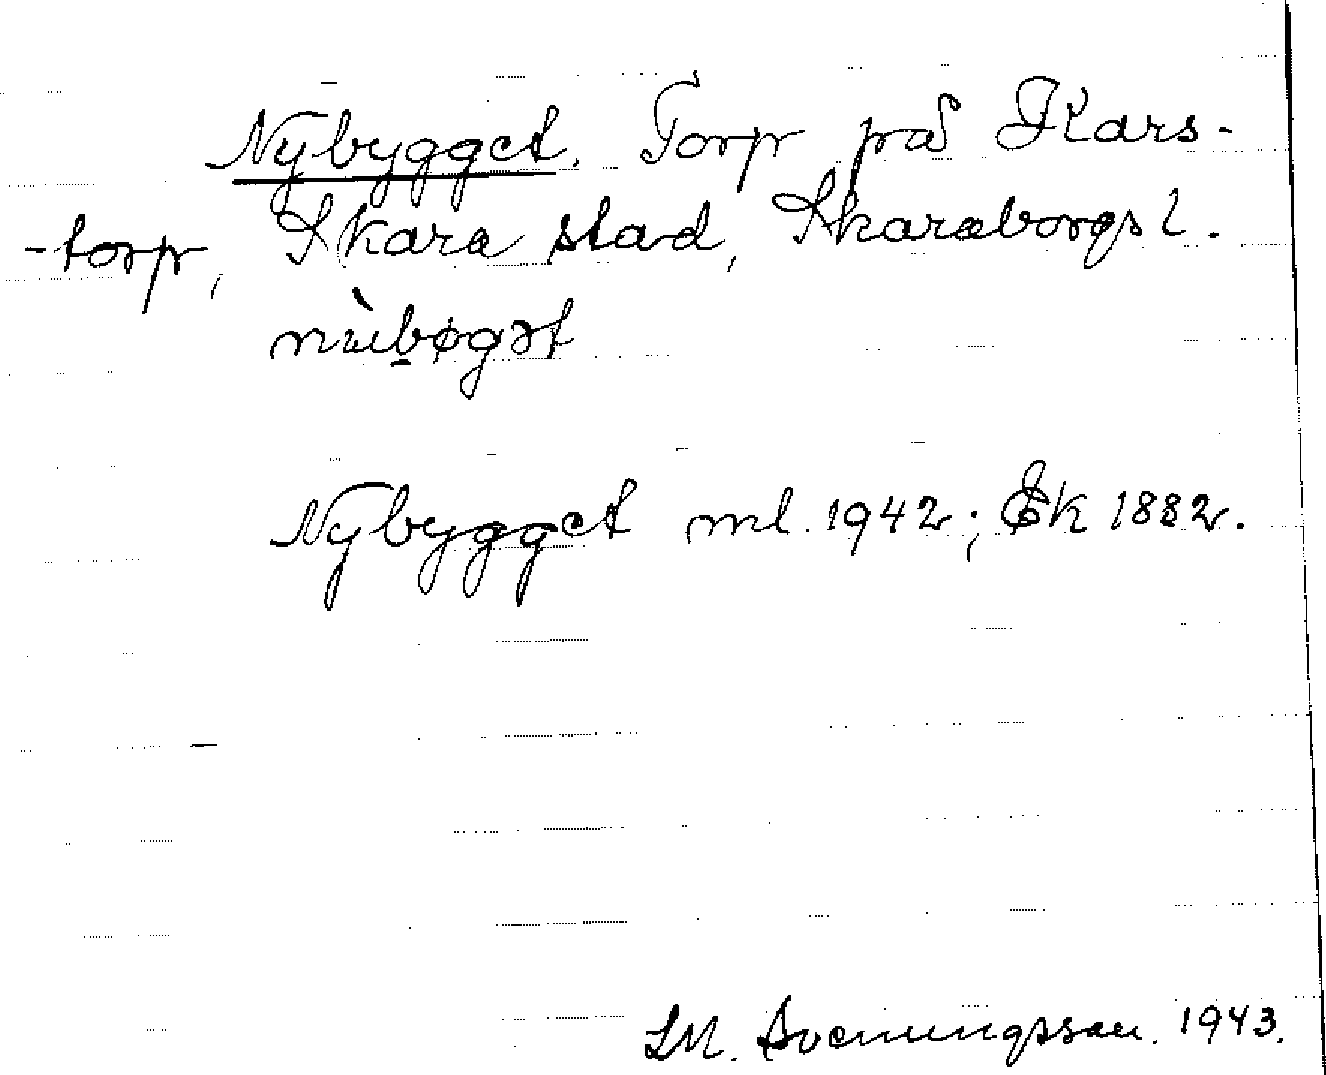 Nybygget. Torp på Kars-
-torp, Skara stad, Skaraborgs l.
Nybygget ml. 1942; Ek 1882.
LM. Svenningsson. 1943.